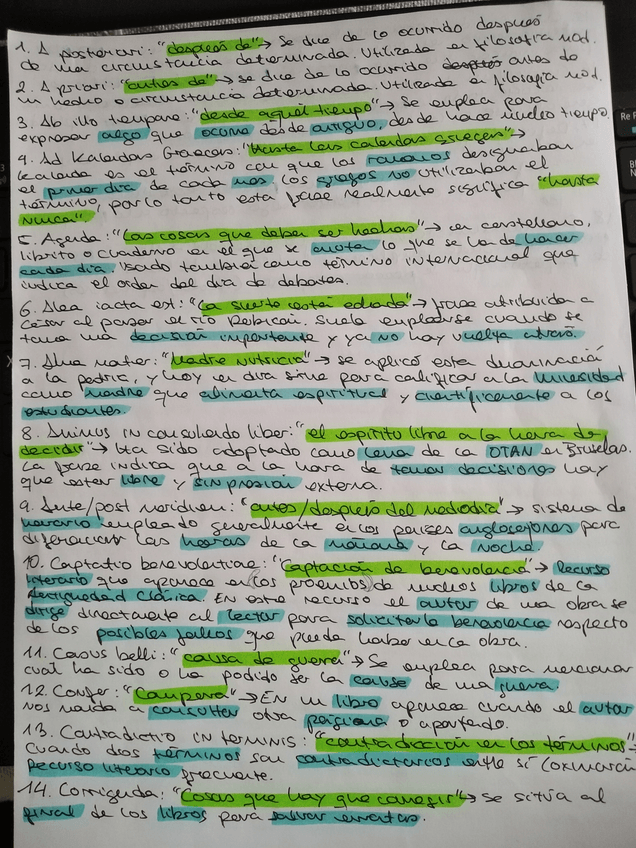 1. A posteriori: "después de" → Se dice de lo ocurrido después
de una circunstancia determinada. Utilizada en filosofía mod.
2. A priori: "antes de" → se dice de lo ocurrido después antes de
un hecho o circunstancia determinada. Utilizada en filosofía mod.
3. Ab illo tempore: "desde aquel tiempo" → Se emplea para
expresar algo que ocurre desde antiguo, desde hace mucho tiempo.
4. Ad Kalendas Graecas: "Hasta las calendas griegas" →
Kalenda es el término con que los romanos designaban
el primer día de cada mes, los griegos no utilizaban el
término, por lo tanto esta frase realmente significa "hasta
nunca".
5. Agenda: "Las cosas que deben ser hechas" → en castellano,
librito o cuaderno en el que se anota lo que se ha de hacer
cada día. Usado también como término internacional que
indica el orden del día de debates.
6. Alea iacta est: "La suerte está echada" → frase atribuida a
César al pasar el río Rubicón. Suele emplearse cuando se
toma una decisión importante y ya no hay vuelta atrás.
7. Alma mater: "Madre nutricia" → se aplicó esta denominación
a la patria, y hoy en día sirve para calificar a la Universidad
como madre que alimenta espiritual y científicamente a los
estudiantes.
8. Animus in consulendo liber: "el espíritu libre a la hora de
decidir" → Ha sido adoptado como lema de la OTAN en Bruselas.
La frase indica que a la hora de tomar decisiones hay
que estar libre y sin presión externa.
9. Ante/post meridiem: "antes/después del mediodía" → sistema de
horario empleado generalmente en los países anglosajones para
diferenciar las horas de la mañana y la noche.
10. Captatio benevolentiae: "Captación de benevolencia" → Recurso
literario que aparece en los proemios de muchos libros de la
Antigüedad Clásica. En este recurso el autor de una obra se
dirige directamente al lector para solicitar la benevolencia respecto
de los posibles fallos que pueda haber en la obra.
11. Casus belli: "causa de guerra" → Se emplea para mencionar
cuál ha sido o ha podido ser la causa de una guerra.
12. Confer: "Compara" → En un libro aparece cuando el autor
nos manda a consultar otra página o apartado.
13. Contradictio in terminis: "contradicción en los términos" →
Cuando dos términos son contradictorios entre sí (oximoron
recurso literario frecuente.
14. Corrigenda: "Cosas que hay que corregir" → Se sitúa al
final de los libros para salvar erratas.